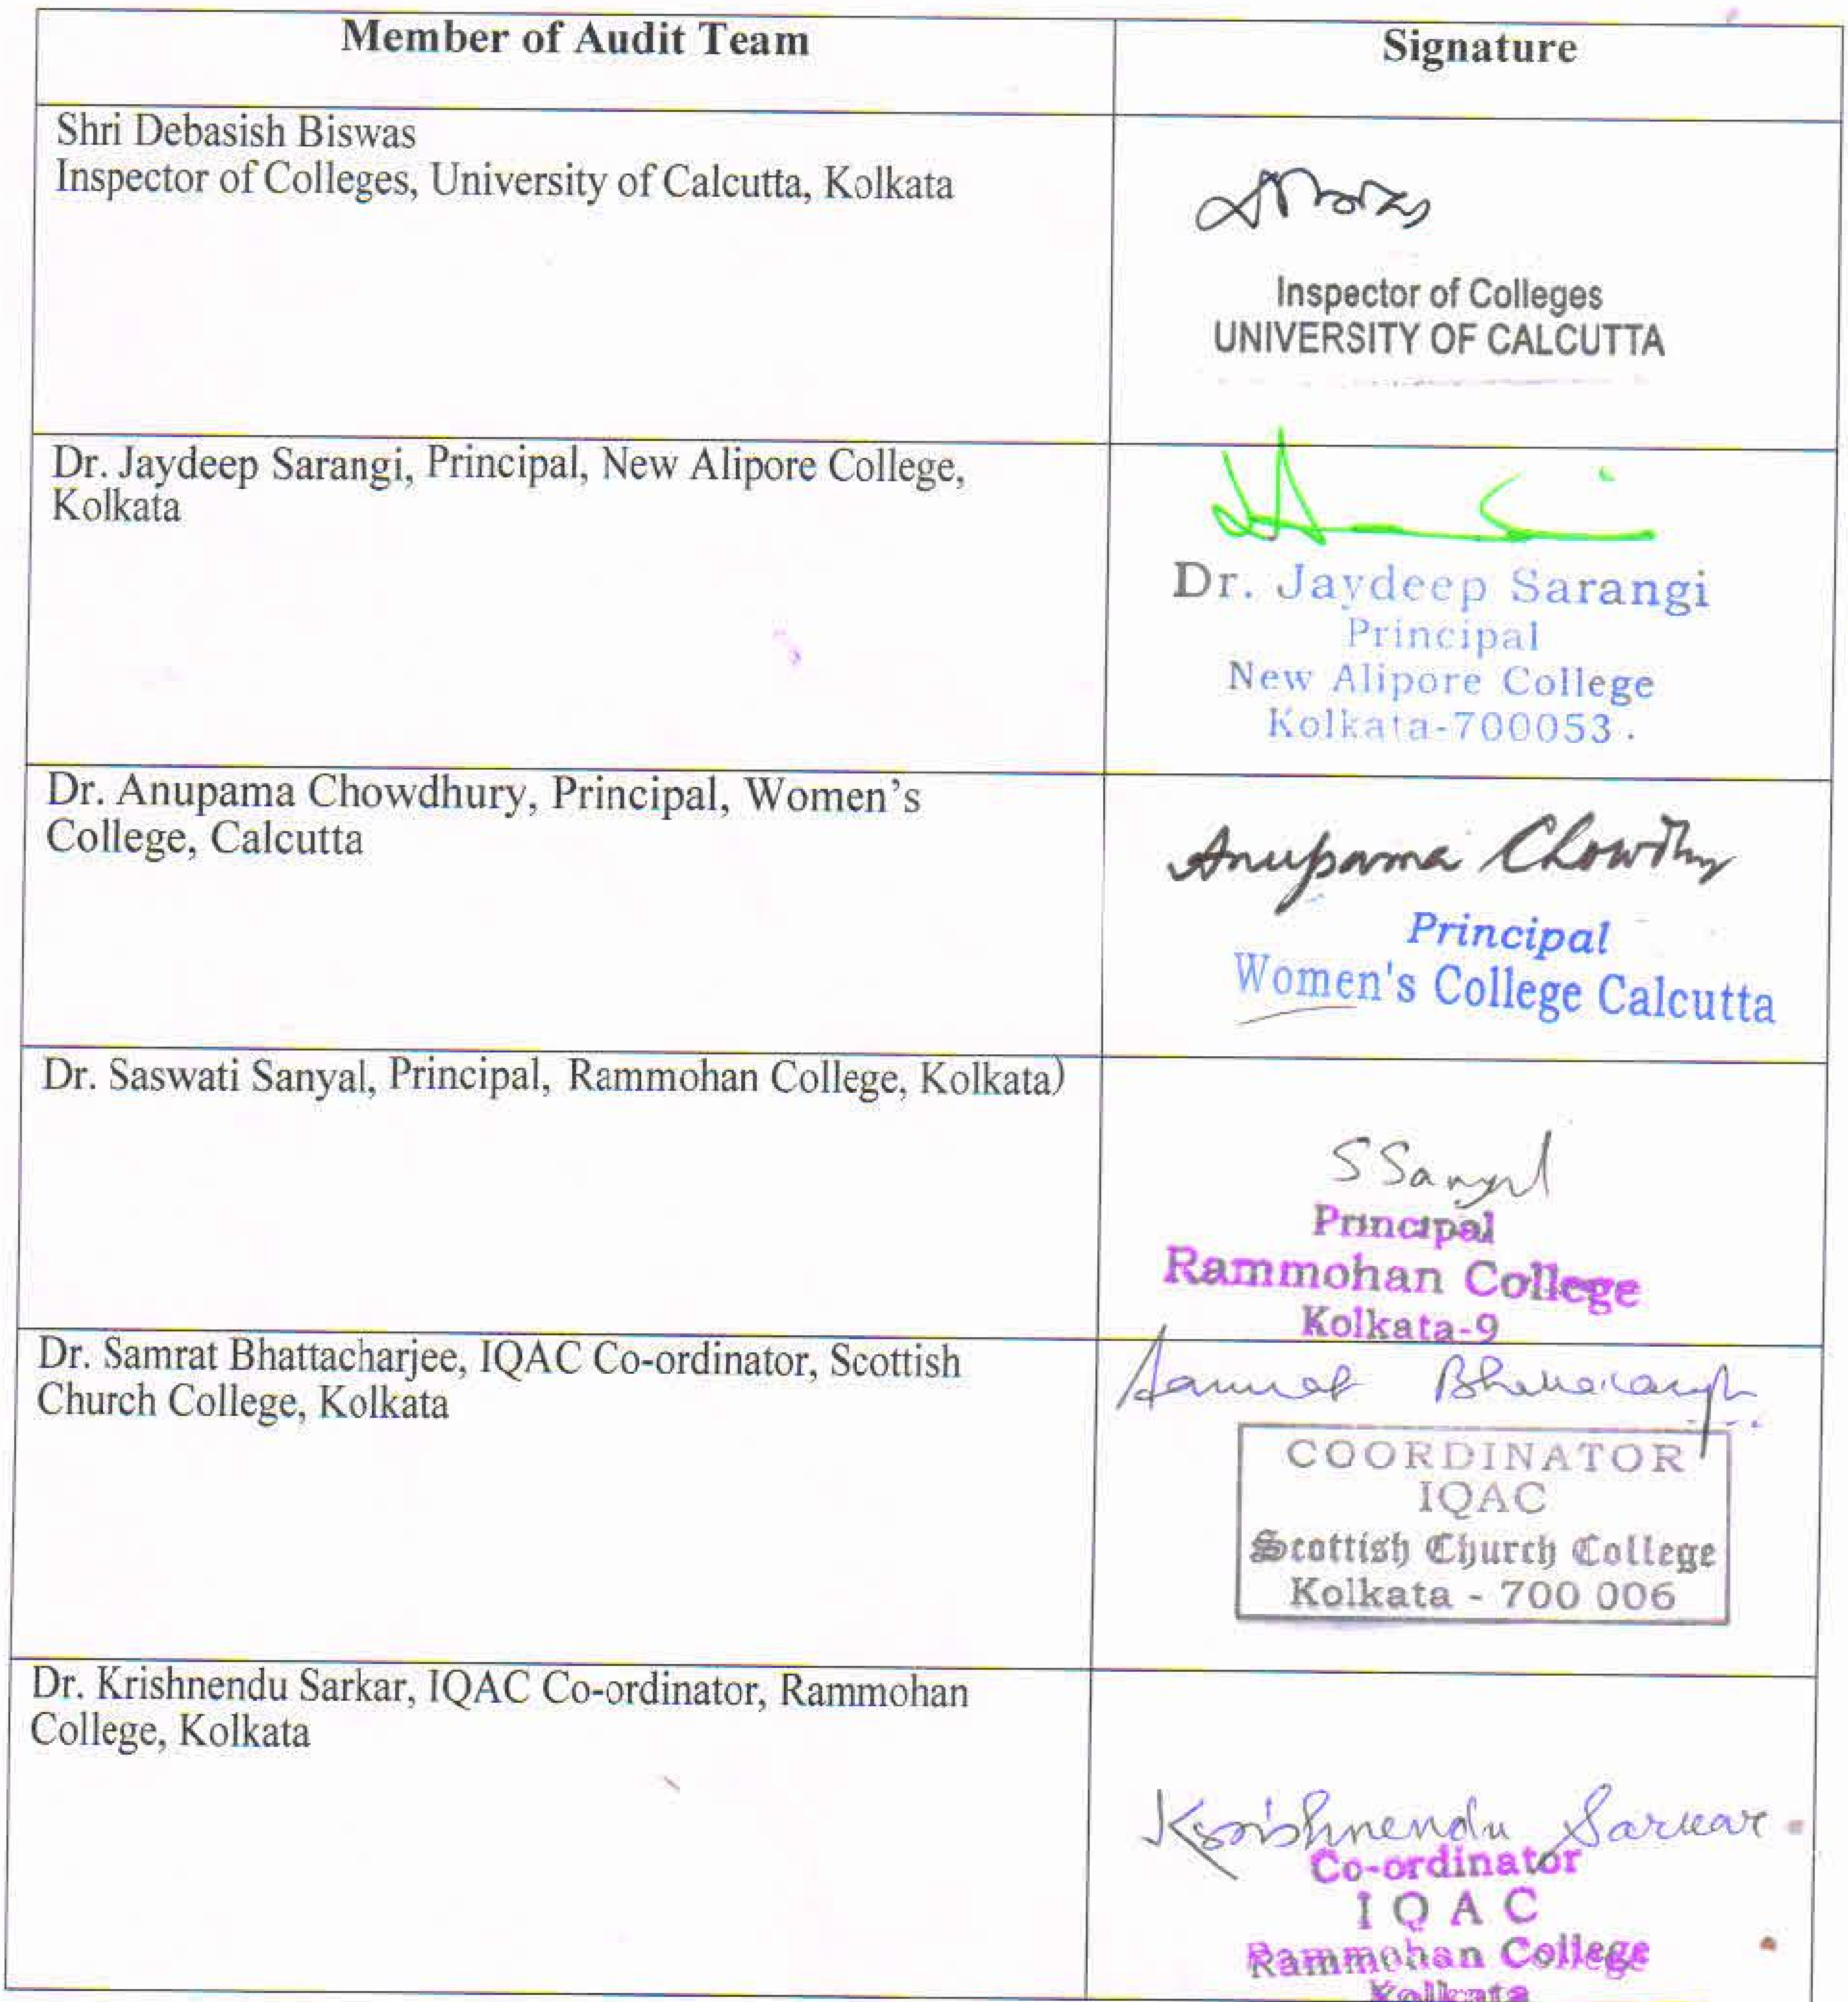 Member of Audit Team
Signature
Shri Debasish Biswas
Inspector of Colleges, University of Calcutta, Kolkata
Inspector of Colleges
UNIVERSITY OF CALCUTTA
Dr. Jaydeep Sarangi, Principal, New Alipore College,
Kolkata
Dr. Jaydeep Sarangi
Principal
New Alipore College
Kolkata-700053.
Dr. Anupama Chowdhury, Principal, Women's
College, Calcutta
Anupama Chowdhy
Principal
Women's College Calcutta
Dr. Saswati Sanyal, Principal, Rammohan College, Kolkata)
S Sanyal
Principal
Rammohan College
Kolkata-9
Dr. Samrat Bhattacharjee, IQAC Co-ordinator, Scottish
Church College, Kolkata
Samrat Bhattacharjee
COORDINATOR
IQAC
Scottish Church College
Kolkata - 700 006
Dr. Krishnendu Sarkar, IQAC Co-ordinator, Rammohan
College, Kolkata
Krishnendu Sarkar
Co-ordinator
I Q A C
Rammohan College
Kolkata